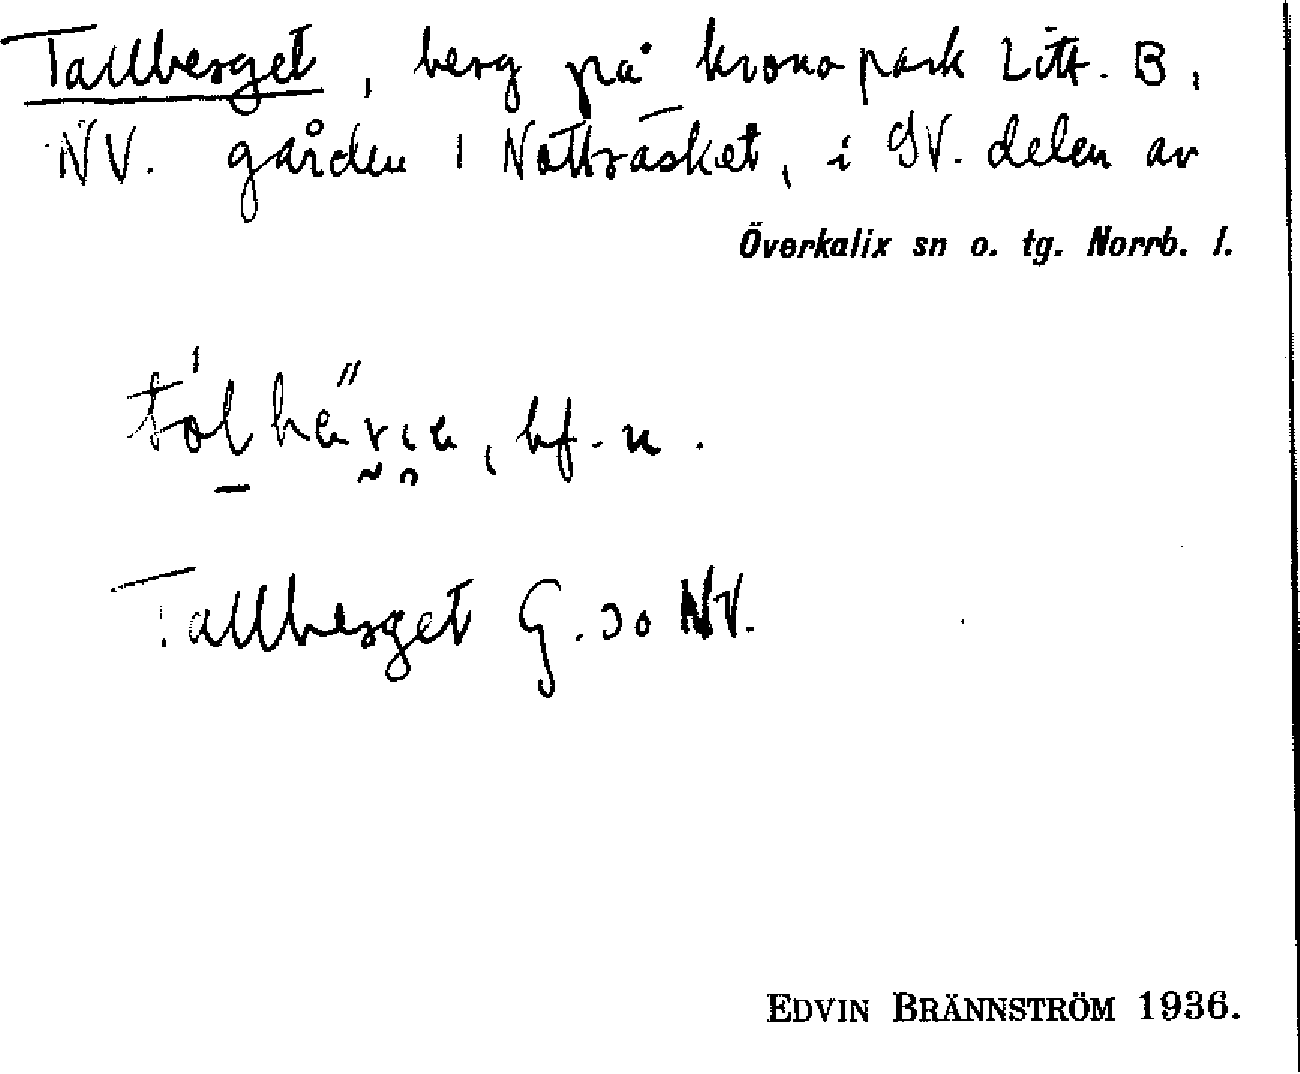 Tallberget, berg på kronopark Litt. B,
NV. gården 1 Nottråsket, i SV. delen av
Överkalix sn o. tg. Norrb. l.
bf. n.
Tallberget G. 30 NV.
EDVIN BRÄNNSTRÖM 1936.